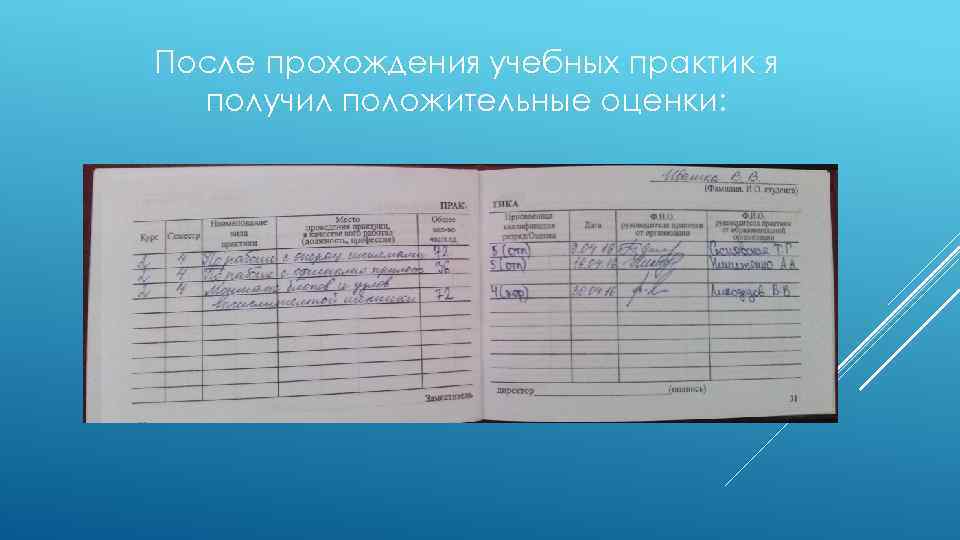 После прохождения учебных практик я
получил положительные оценки:
Ивашка В. В.
(Фамилия, И.О. студента)
ПРАК-
ТИКА
Курс
Семестр
Наименование
вида
практики
Место
проведения практики,
в качестве кого работал
(должность, профессия)
Общее
кол-во
час/нед
Присвоенная
квалификация
разряд/Оценка
Дата
Ф.И.О.
руководителя практики
от организации
Ф.И.О.
руководителя практики
от образовательной
организации
2 4 По работе с операц. системами 72
5 (отл) 9.04.16 Т.Г.
2 4 По работе с 36
5 (отл) 16 А.А.
2 4 Монтаж блоков и узлов
вычислительной техники 72
4 (хор) 30.04.16 В.В.
Заместитель
директор (подпись)
31